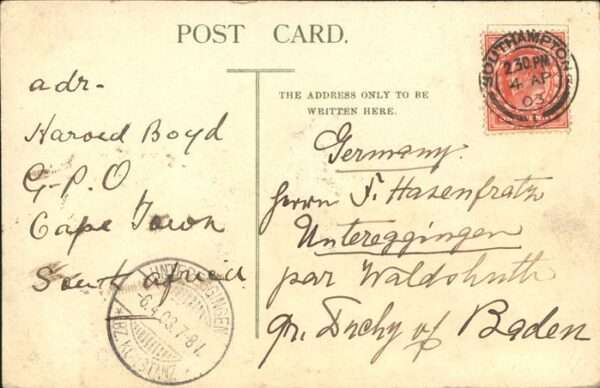 POST CARD.
THE ADDRESS ONLY TO BE
WRITTEN HERE.
adr.
Harold Boyd
G.P.O
Cape Town
South Africa
SOUTHAMPTON
2.30 PM
4 AP
03
Germany.
Herrn F. Hasenfratz
Untereggingen
par Waldshuth
gr. Duchy of Baden
UNTEREGGINGEN
-6.4.03.7-8V.